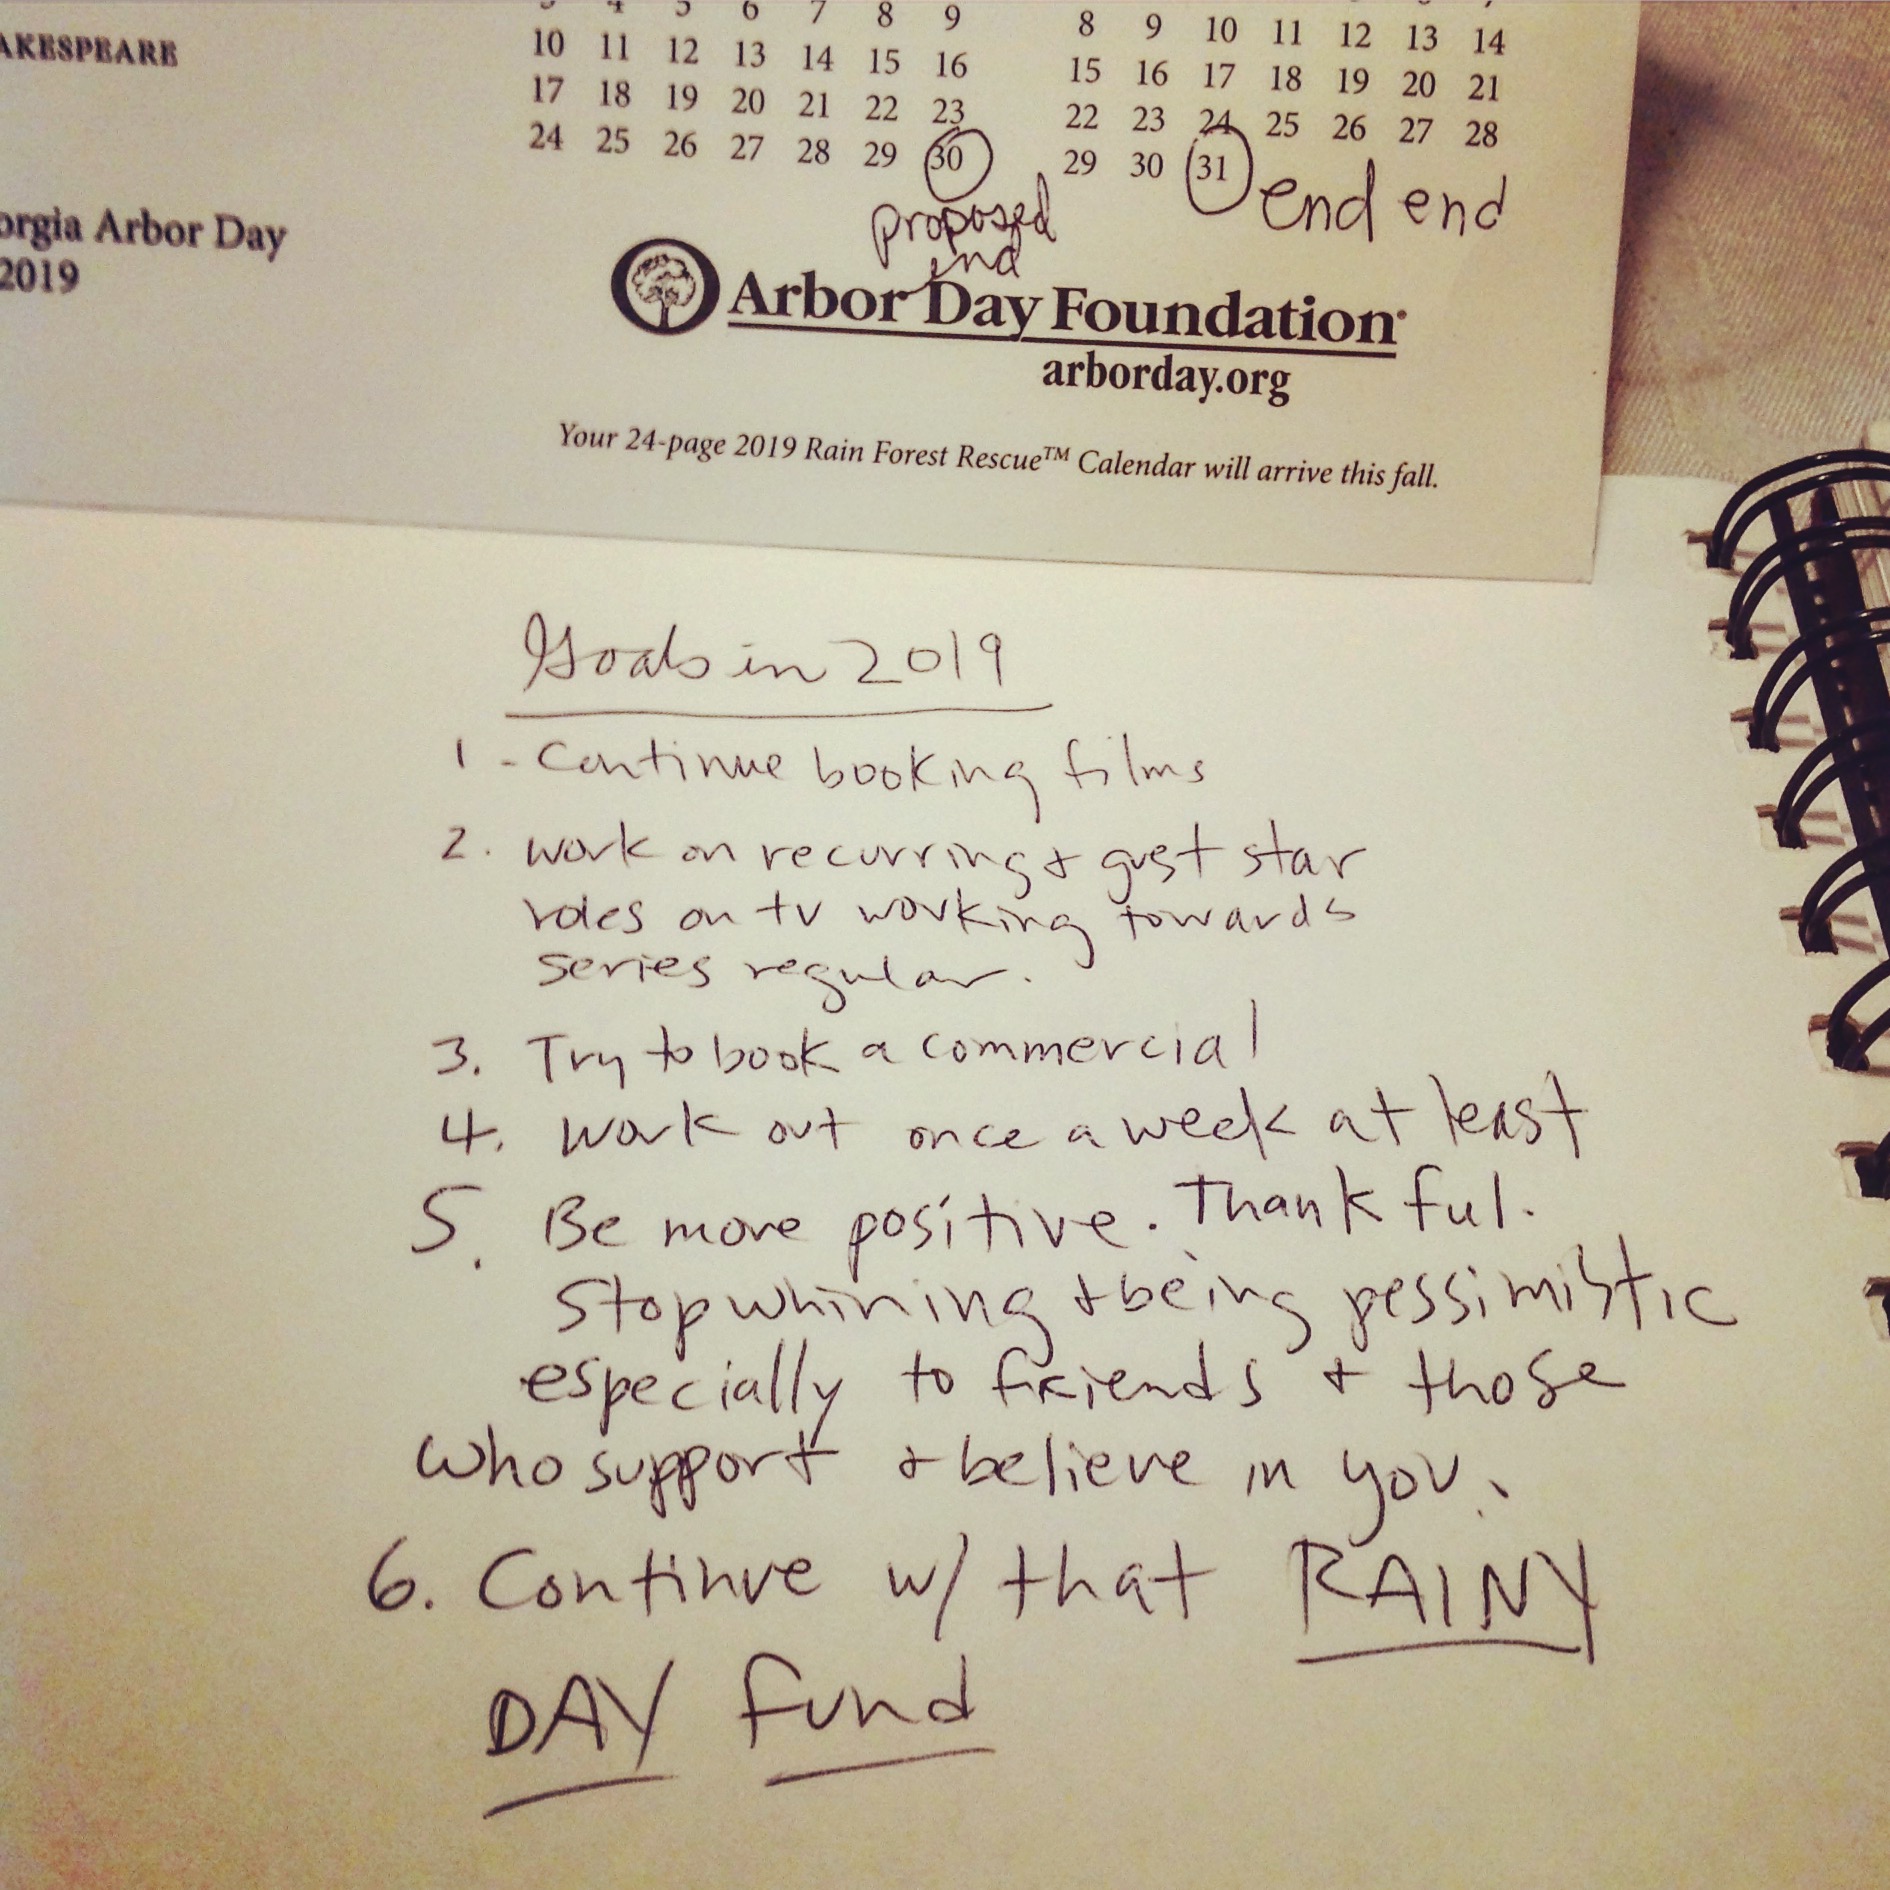 AKESPEARE
orgia Arbor Day
2019
4 5 6 7 8 9
10 11 12 13 14 15 16
17 18 19 20 21 22 23
24 25 26 27 28 29 30
8 9 10 11 12 13 14
15 16 17 18 19 20 21
22 23 24 25 26 27 28
29 30 31
end end
proposed
end
Arbor Day Foundation®
arborday.org
Your 24-page 2019 Rain Forest Rescue™ Calendar will arrive this fall.
Goals in 2019
1 - Continue booking films
2. work on recurring + gust star
roles on tv working towards
series regular.
3. Try to book a commercial
4. Work out once a week at least
5. Be more positive. Thankful.
Stop whining + being pessimistic
especially to friends + those
who support + believe in you.
6. Continue w/ that RAINY
DAY fund